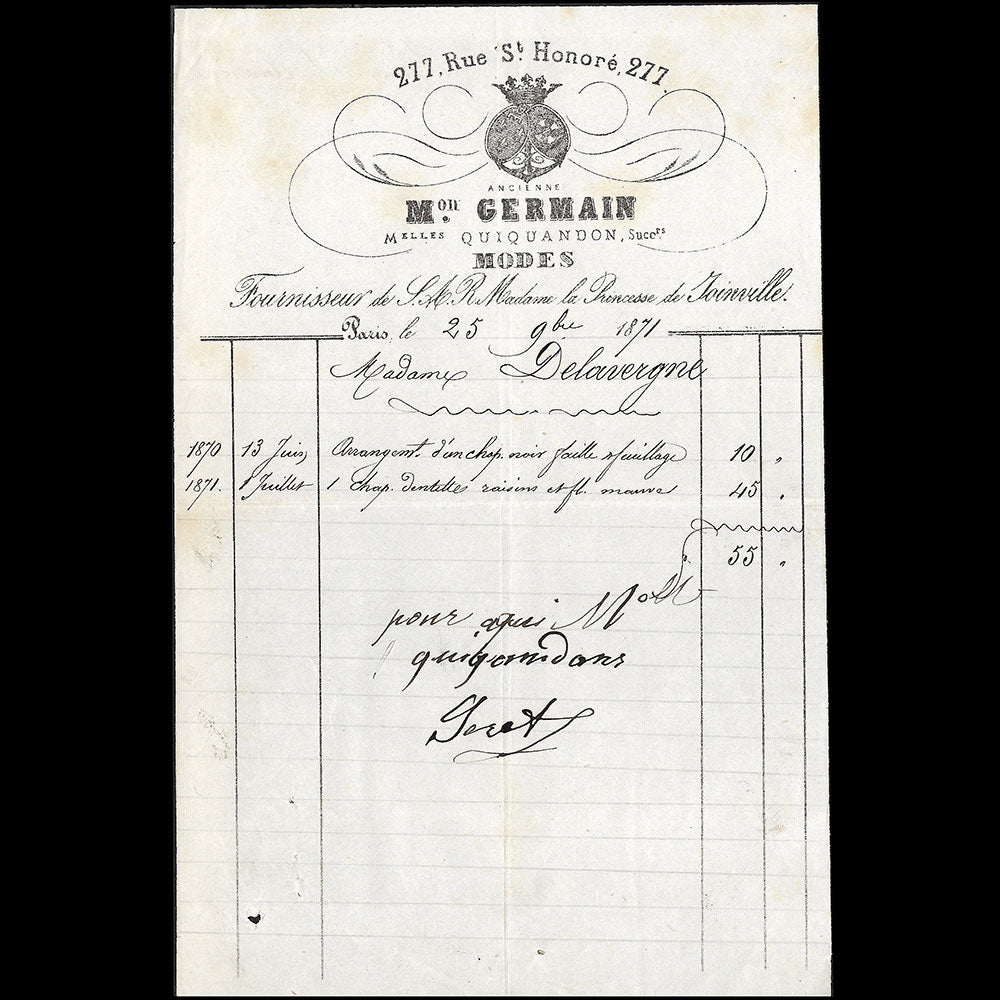 277, Rue St. Honoré, 277.
ANCIENNE
Mon. GERMAIN
MELLES QUIQUANDON, Succrs
MODES
Fournisseur de S.A.R. Madame la Princesse de Joinville.
Paris, le 25 9bre 1871
Madame Delavergne
1870 13 Juin Arrangent. d'un chap. noir faille & feuillage 10 "
1871. 1 Juillet 1 chap. dentelles raisins et fl. mauve 45 "
55 "
pour aquis
quiqandans